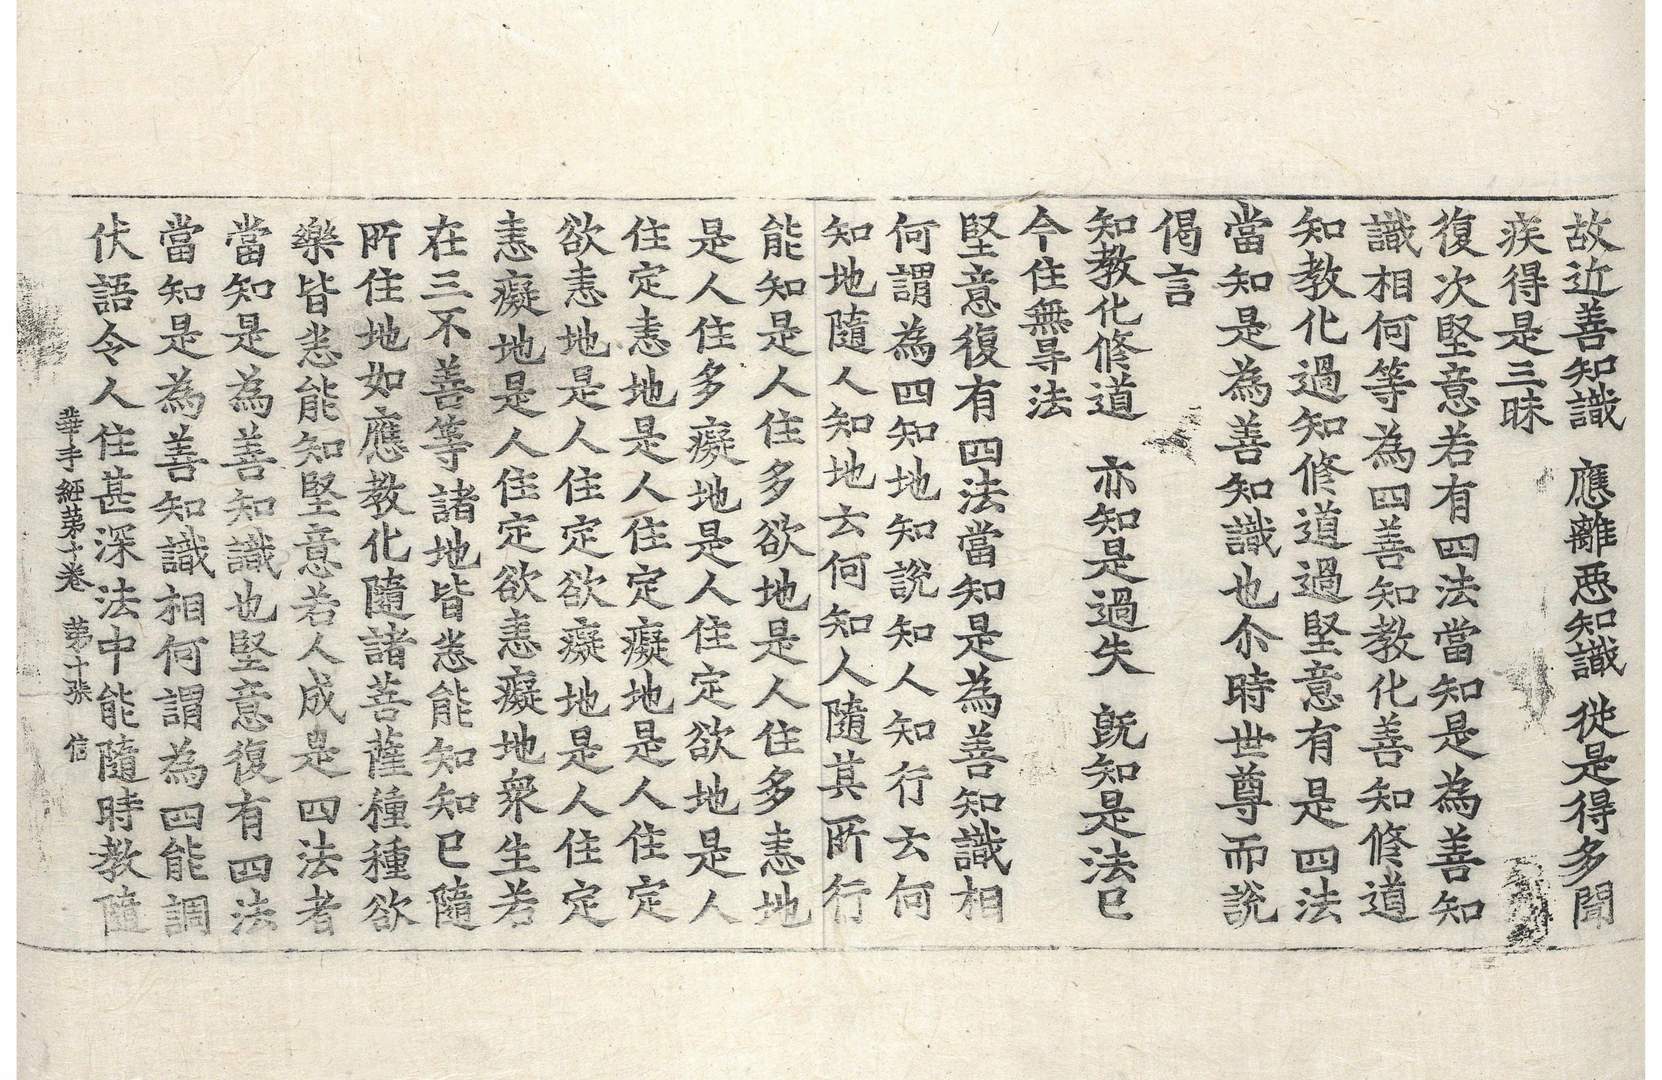 故近善知識　應離惡知識　從是得多聞
疾得是三昧
復次堅意若有四法當知是為善知
識相何等為四善知教化善知修道
知教化過知修道過堅意有是四法
當知是為善知識也尒時世尊而說
偈言
知教化修道　亦知是過失　旣知是法已
今住無㝵法
堅意復有四法當知是為善知識相
何謂為四知地知說知人知行云何
知地隨人知地云何知人隨其所行
能知是人住多欲地是人住多恚地
是人住多癡地是人住定欲地是人
住定恚地是人住定癡地是人住定
欲恚地是人住定欲癡地是人住定
恚癡地是人住定欲恚癡地衆生若
在三不善等諸地皆悉能知知已隨
所住地如應教化隨諸菩薩種種欲
樂皆悉能知堅意若人成是四法者
當知是為善知識也堅意復有四法
當知是為善知識相何謂為四能調
伏語令人住甚深法中能隨時教隨
華手經苐十卷　苐十張　信